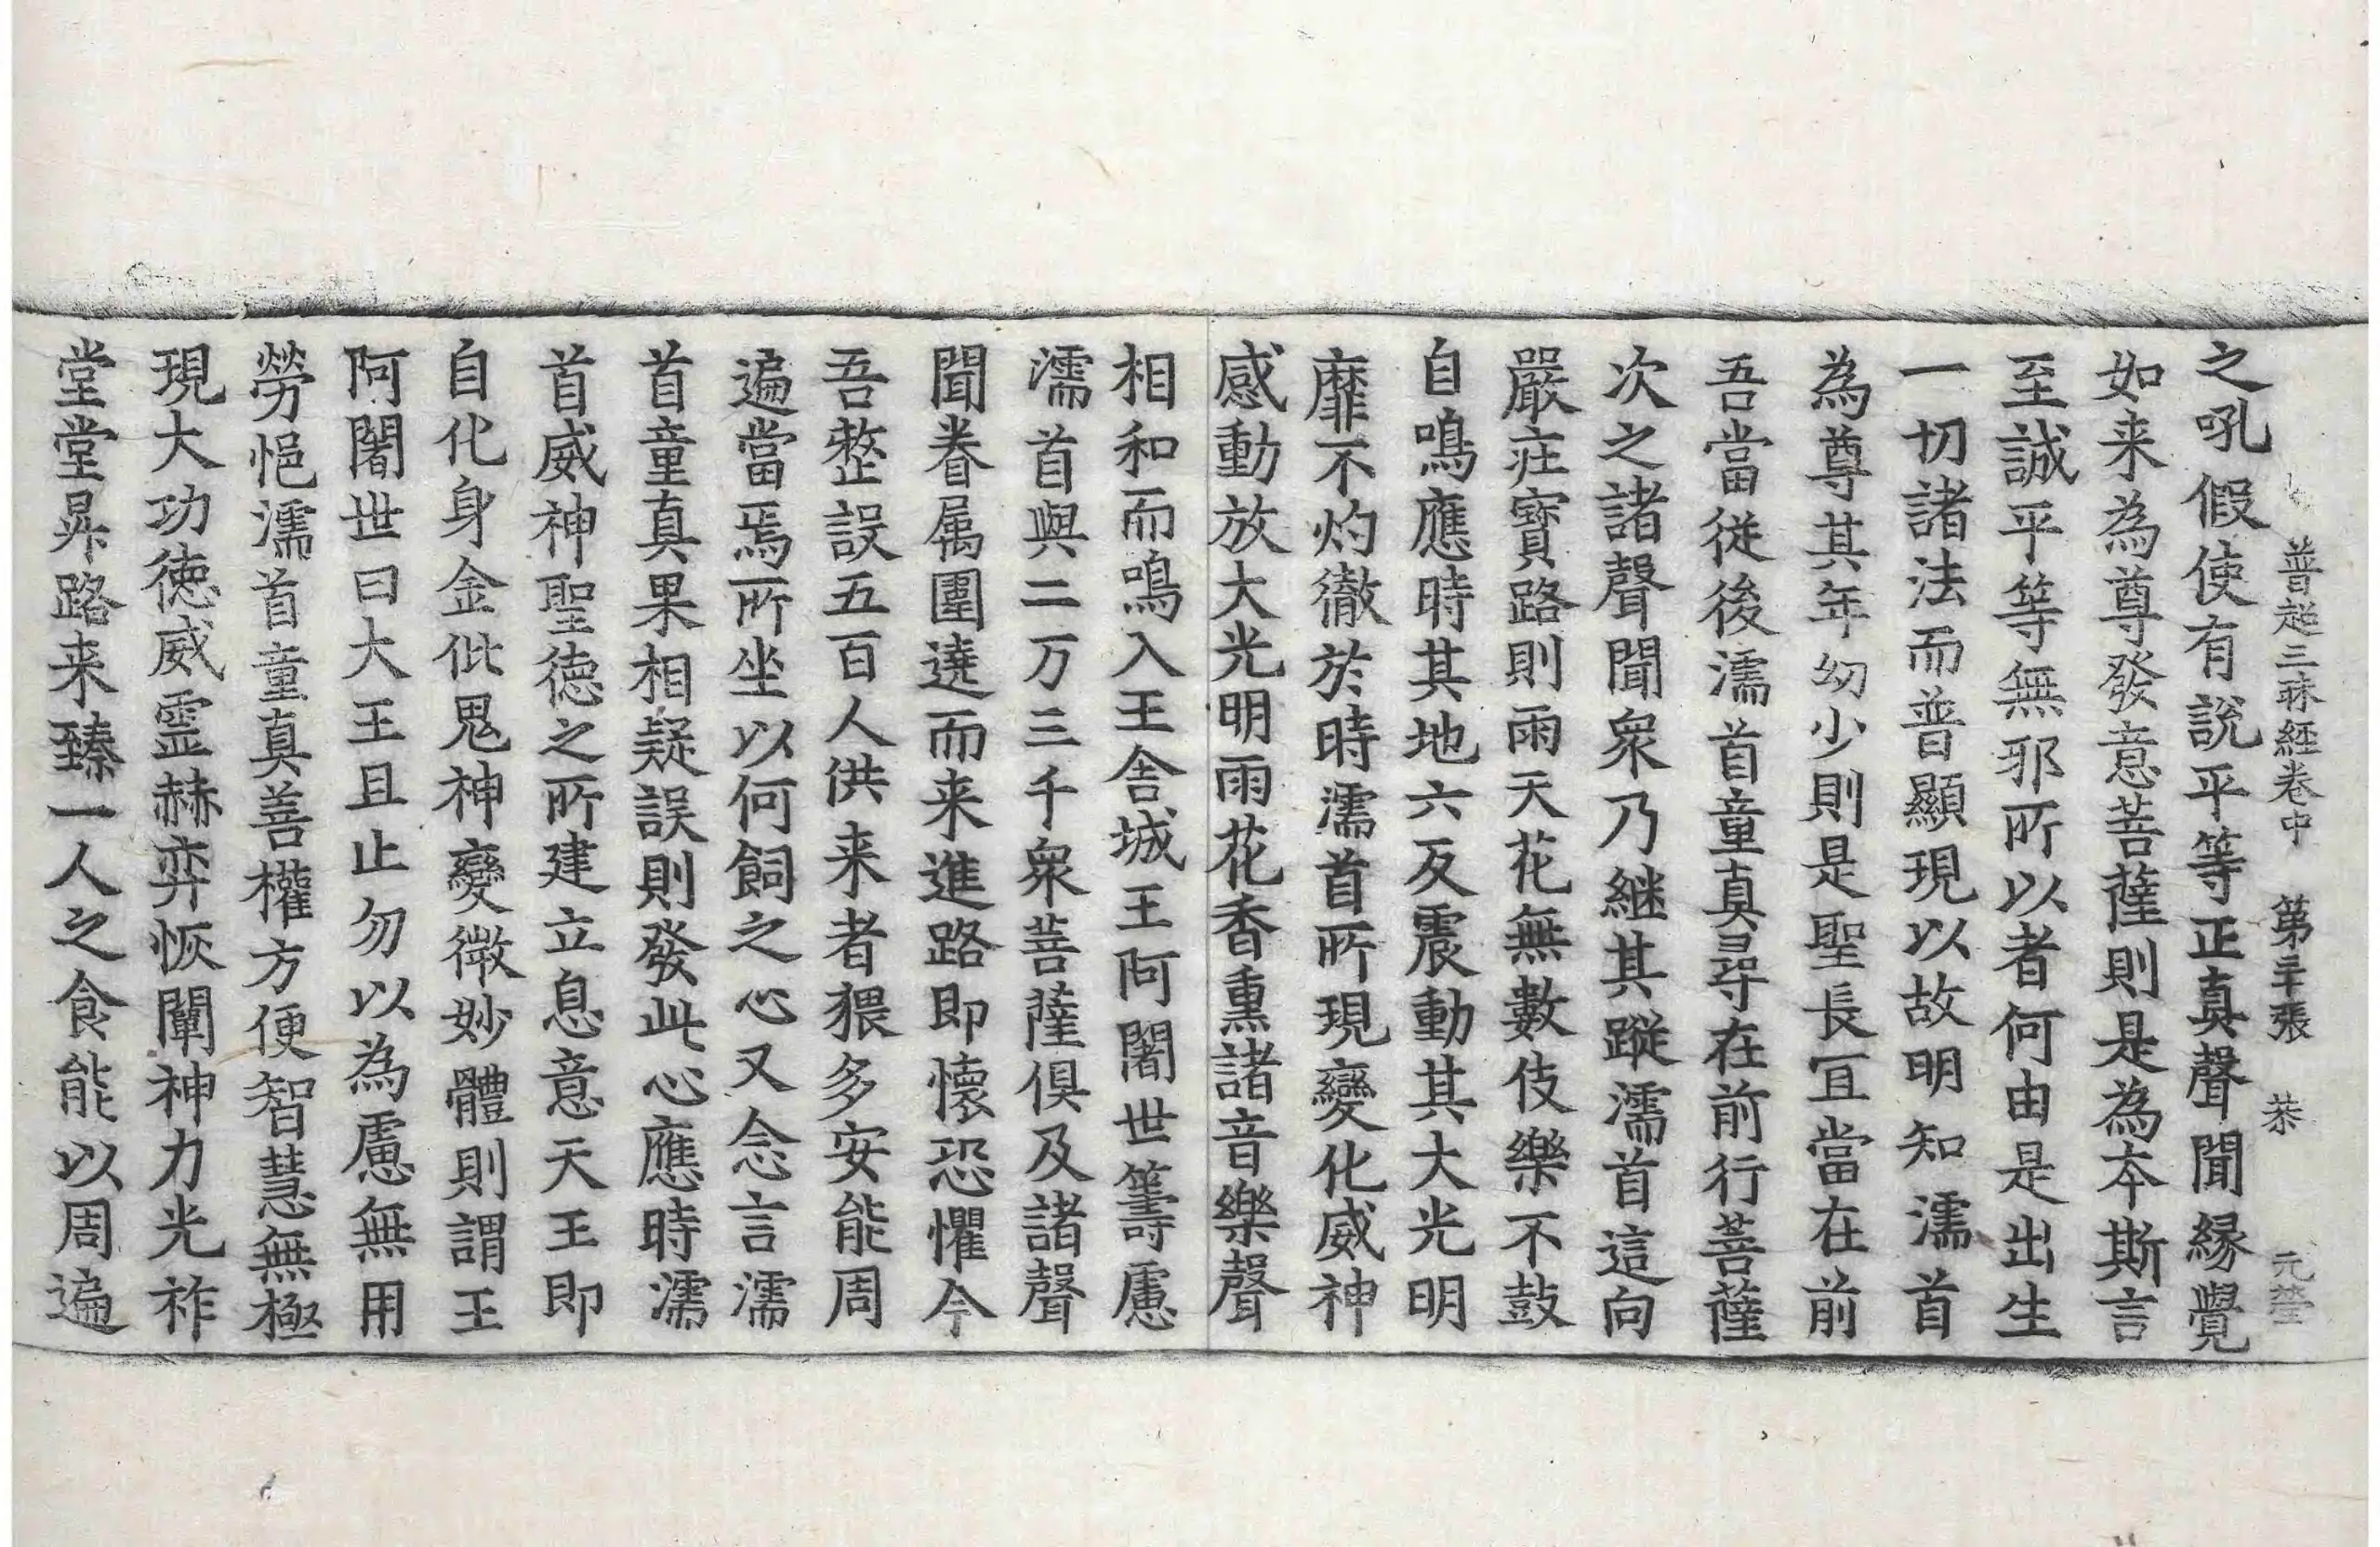 普超三昧經卷中　第二十張　恭　元瑩
之吼假使有說平等正真聲聞緣覺
如来為尊發意菩薩則是為本斯言
至誠平等無邪所以者何由是出生
一切諸法而普顯現以故明知濡首
為尊其年幼少則是聖長冝當在前
吾當従後濡首童真尋在前行菩薩
次之諸聲聞衆乃継其蹤濡首這向
嚴庄寳路則雨天花無數伎樂不鼓
自鳴應時其地六反震動其大光明
靡不灼徹於時濡首所現變化威神
感動放大光明雨花香熏諸音樂聲
相和而鳴入王舎城王阿闍世籌慮
濡首與二万三千衆菩薩俱及諸聲
聞眷属圍遶而来進路即懷恐懼今
吾整設五百人供来者猥多安能周
遍當焉所坐以何飼之心又念言濡
首童真果相疑誤則發此心應時濡
首威神聖徳之所建立息意天王即
自化身金毗鬼神變微妙體則謂王
阿闍世曰大王且止勿以為慮無用
勞悒濡首童真善權方便智慧無極
現大功徳威霊赫弈恢闡神力光祚
堂堂昇路来臻一人之食能以周遍